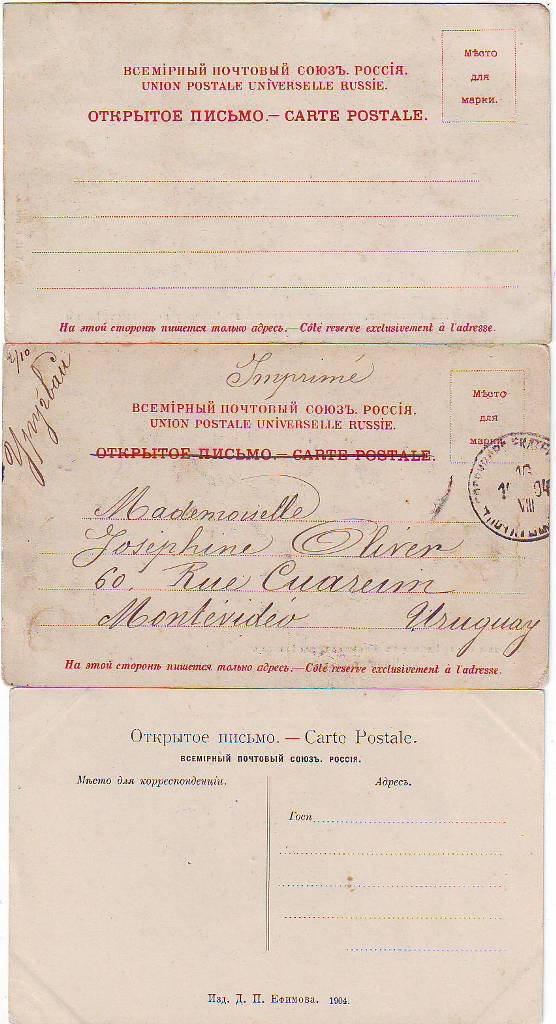 Мѣсто
для
марки.
ВСЕМІРНЫЙ ПОЧТОВЫЙ СОЮЗЪ. РОССІЯ.
UNION POSTALE UNIVERSELLE RUSSIE.
ОТКРЫТОЕ ПИСЬМО.— CARTE POSTALE.
На этой сторонѣ пишется только адресъ.—Côté reserve exclusivement à l'adresse.
Уругвай
Imprimé
Мѣсто
для
марки
ВСЕМІРНЫЙ ПОЧТОВЫЙ СОЮЗЪ. РОССІЯ.
UNION POSTALE UNIVERSELLE RUSSIE.
ОТКРЫТОЕ ПИСЬМО.— CARTE POSTALE.
VIII
Mademoiselle
Joséphine Oliver
60. Rue Cuareim
Montévidéo Uruguay
На этой сторонѣ пишется только адресъ.—Côté reserve exclusivement à l'adresse.
Открытое письмо. — Carte Postale.
ВСЕМІРНЫЙ ПОЧТОВЫЙ СОЮЗЪ. РОССІЯ.
Мѣсто для корреспонденціи.
Адресъ.
Госп
Изд. Д. П. Ефимова. 1904.